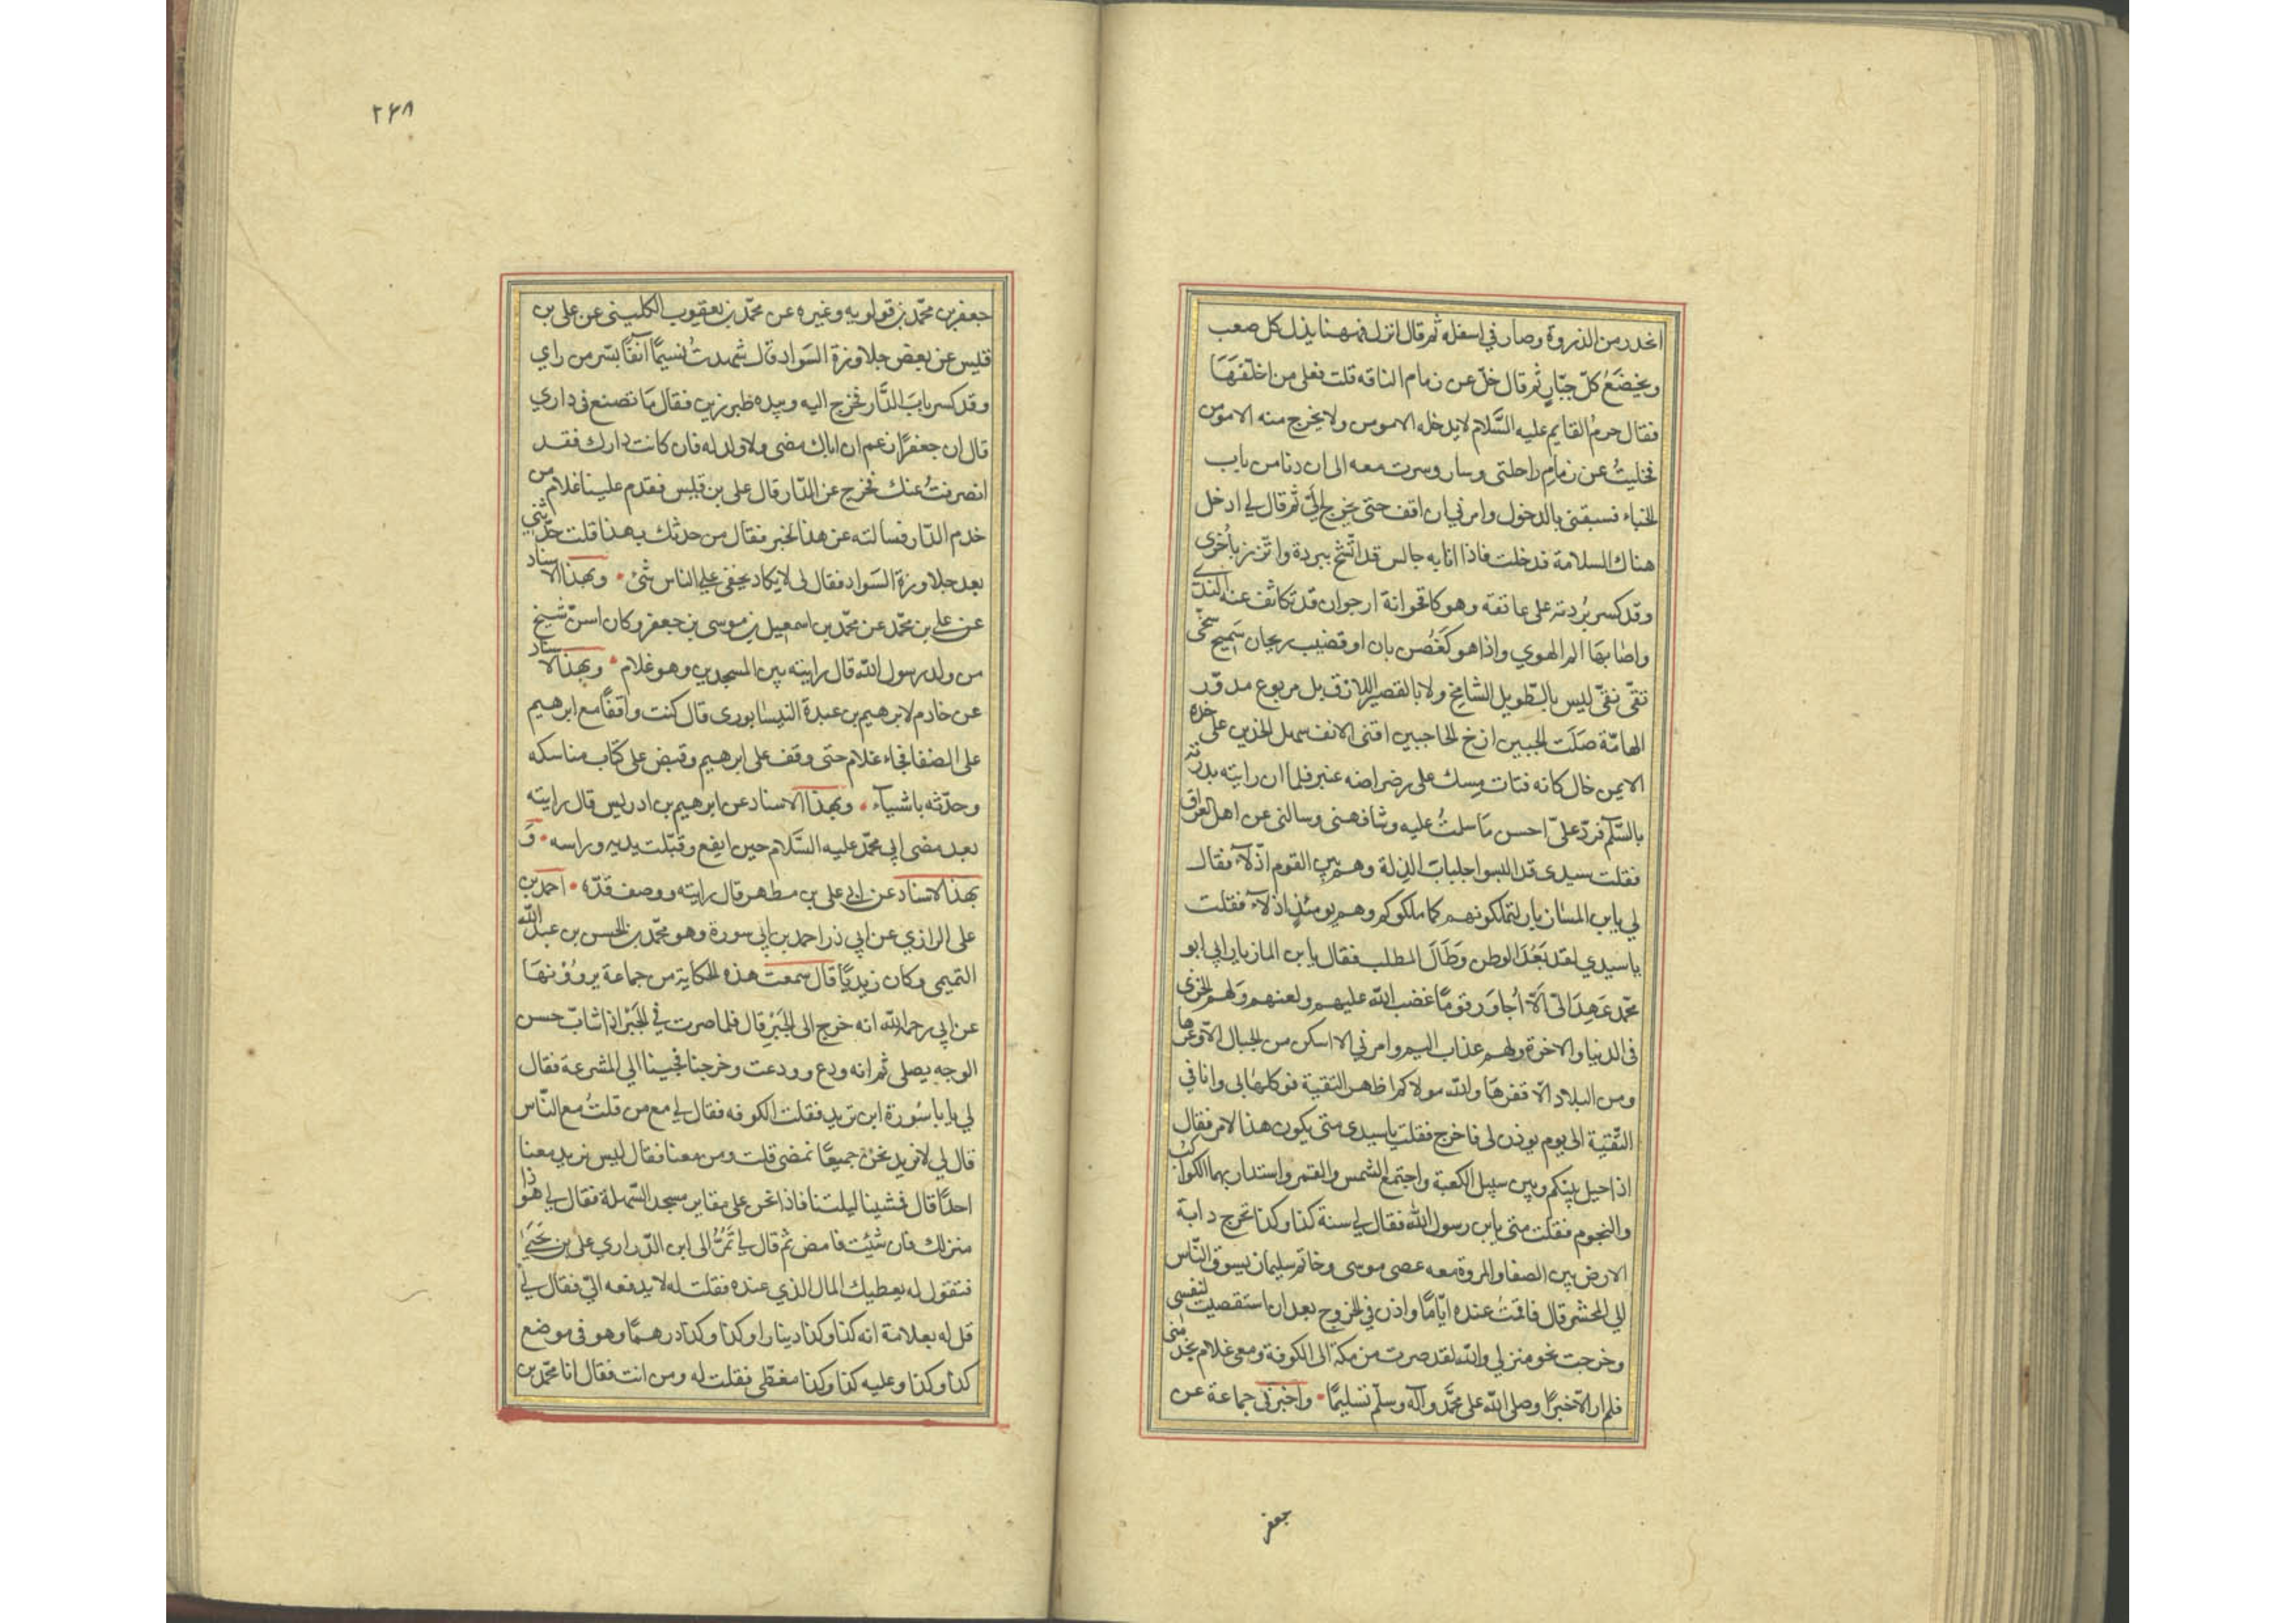 انحدر من الذروة وصار في اسفله ثم قال انزل فههنا يذل كل صعب
ويخضع كلّ جبّارٍ ثم قال خلّ عن زمام الناقه قلت فعلى من اخلّفهَا
فقال حرمُ القايم عليه السَّلام لا يدخله الا مومن ولا يخرج منه الا مومن
فخليتُ عن زمامِ راحلتى وسار وسرت معه الى ان دنا من باب
الخباء فسبقنى بالدخول وامرني ان اقف حتى يخرج اليّ ثم قال لي ادخل
هناك السلامة فدخلت فاذا انا به جالس قد اتّشح ببردة واتّزر باُخرى
وقد كسر بُردته على عاتقه وهو كاقحوانة ارجوان قد تكاثف عنه الندى
واصابهَا الم الهوي واذا هو كَغُصن بان او قضيب ريحان سَميح سخّى
تقىّ نقىّ ليس بالطّويل الشامخ ولا بالقصير اللازق بل مربوع مدوّر
الهامّة صَلَت الجبين ازخ الحاجبين اقنى الانف سهل الخدين على خده
الايمن خال كانه فتات مِسك على رضراضه عنبر فلما ان رايته بدرته
بالسّلم فردّ علىّ احسن مَا سلمتُ عليه وشافهنى وسالنى عن اهل العراق
فقلت سيدى قد البسوا جلباب الذلة وهم بين القوم اذّلآء فقال
لي يابن المسٰازيار لتملكونهم كما ملكوكم وهم يومئذٍ اذلاّء فقلت
ياسيدي لقد بَعُدَ الوطن وَطَالَ المطلب فقال يابن المازيار ابي ابو
محمّد عَهِدَ الىّ اَلّا اُجاوَر قومًا غضب الله عليهم ولعنهم وَلهم الخزى
فى الدنيا والاخرة ولهم عذاب اليم وامرني الا اسكن من الجبال الّا وعرها
ومن البلاد الّا قفرهَا والله مولاكم اظهر التقية فوكلها بى وانا في
التّقية الى يوم يوذن لى فاخرج فقلت ياسيدى متى يكون هذا الامر فقال
اذا حيل بينكم وبين سبيل الكعبة واجتمع الشمس والقمر واستدار بهما الكواكب
والنجوم فقلت متى يابن رسول الله فقال لي سنة كذا وكذا تخرج دابة
الارض بين الصفا والمروة معه عصى موسى وخاتم سليمان يسوق النّاس
الي المحشر قال فاقمتُ عنده ايّامًا واذن في الخروج بعد ان استقصيت لنفسى
وخرجت نحو منزلي والله لقد صرت من مكة الى الكوفة ومعى غلام يخدمنى
فلم ار الّا خيرًا وصلى الله على محمَّد وآله وسلّم تسليمًا • واخبرَنى جماعة عن
جعفر
٢۶٨
جعفر بن محمّد بن قولويه وغيره عن محمّد بن يعقوب الكلينى عن على بن
قليس عن بعض جلاوزة السَواد قال شهدتُ نسيمًا آنفًا بسّر من راي
وقد كسر بابَ الدَّار فخرج اليه وبيده طبرزين فقال مَا تصنع فى داري
قال ان جعفرًا زعم ان اباك مضى ولا ولد له فان كانت دارك فقد
انصرفتُ عنك فخرج عن الدّار قال على بن قليس فقدم علينا غلام من
خدم الدّار فسالته عن هذا الخبر فقال من حدثك بهذا قلت حدّثنى
بعد جلاوزة السَواد فقال لى لا يكاد يخفى على الناس شئ • وبهذا الاسناد
عن على بن محمّد عن محمّد بن اسمعيل بن موسى بن جعفر وكان اسنّ شيخ
من ولد رسول الله قال رايته بين المسجدين وهو غلام • وبهذا الاسناد
عن خادم لابرهيم بن عبدة النيسٰابورى قال كنت واقفًا مع ابرهيم
على الصفا فجاء غلام حتى وقف على ابرهيم وقبض على كتاب مناسكه
وحدّثه باشيآء • وبهذا الاسناد عن ابرهيم بن ادريس قال رايته
بعد مضى ابي محمّد عليه السَّلام حين ايفع وقبّلت يديه وراسه • وَ
بهذا الاسناد عن ابي على بن مطهر قال رايته ووصف قدّه • احمد بن
على الرازي عن ابي ذر احمد بن ابي سورة وهو محمّد بن الحسن بن عبد الله
التميمى وكان زيديًّا قال سمعت هذه الحكاية من جماعة يروُوْنهَا
عن ابي رحمه الله انه خرج الى الحَيْرِ قال فلما صرت في الحَيْر اذا شابّ حسن
الوجه يصلى ثم انه ودع وودعت وخرجنا فجينا الي المشرعة فقال
لي يابا سُورة اين تريد فقلت الكوفه فقال لي مع من قلتُ مع النّاس
قال لي لا نريد نحنُ جميعًا نمضى قلت ومن معنا فقال ليس نريد معنا
احدًا قال فمشينا ليلتنا فاذا نحن على مقابر مسجد السّهلة فقال لي هوذا
منزلك فان شئِت فامض ثم قال لي تَمُرُّ الى ابن الزّراري على بن يَحيَى
فتقول له يعطيك المال الذي عنده فقلت له لا يدفعه اليّ فقال لي
قل له بعلامة انه كذا وكذا دينارا وكذا وكذا درهمًا وهو فى موضع
كذا وكذا وعليه كذا وكذا مغطّى فقلت له ومن انت فقال انا محمّد بن